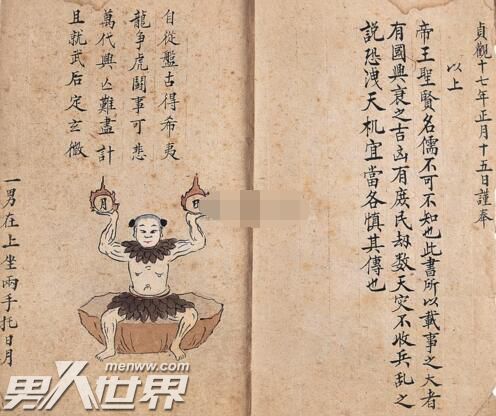 貞觀十七年正月十五日謹奉
以上
帝王聖賢名儒不可不知也此書所以載事之大者
有國興衰之吉凶有庶民劫數天灾不收兵乱之
説恐洩天机宜當各慎其傳也
自從盤古得希夷
龍爭虎鬪事可悲
萬代興亾難盡計
且就武后定玄微
月
日
一男在上坐兩手托日月
menww.com
男人世界